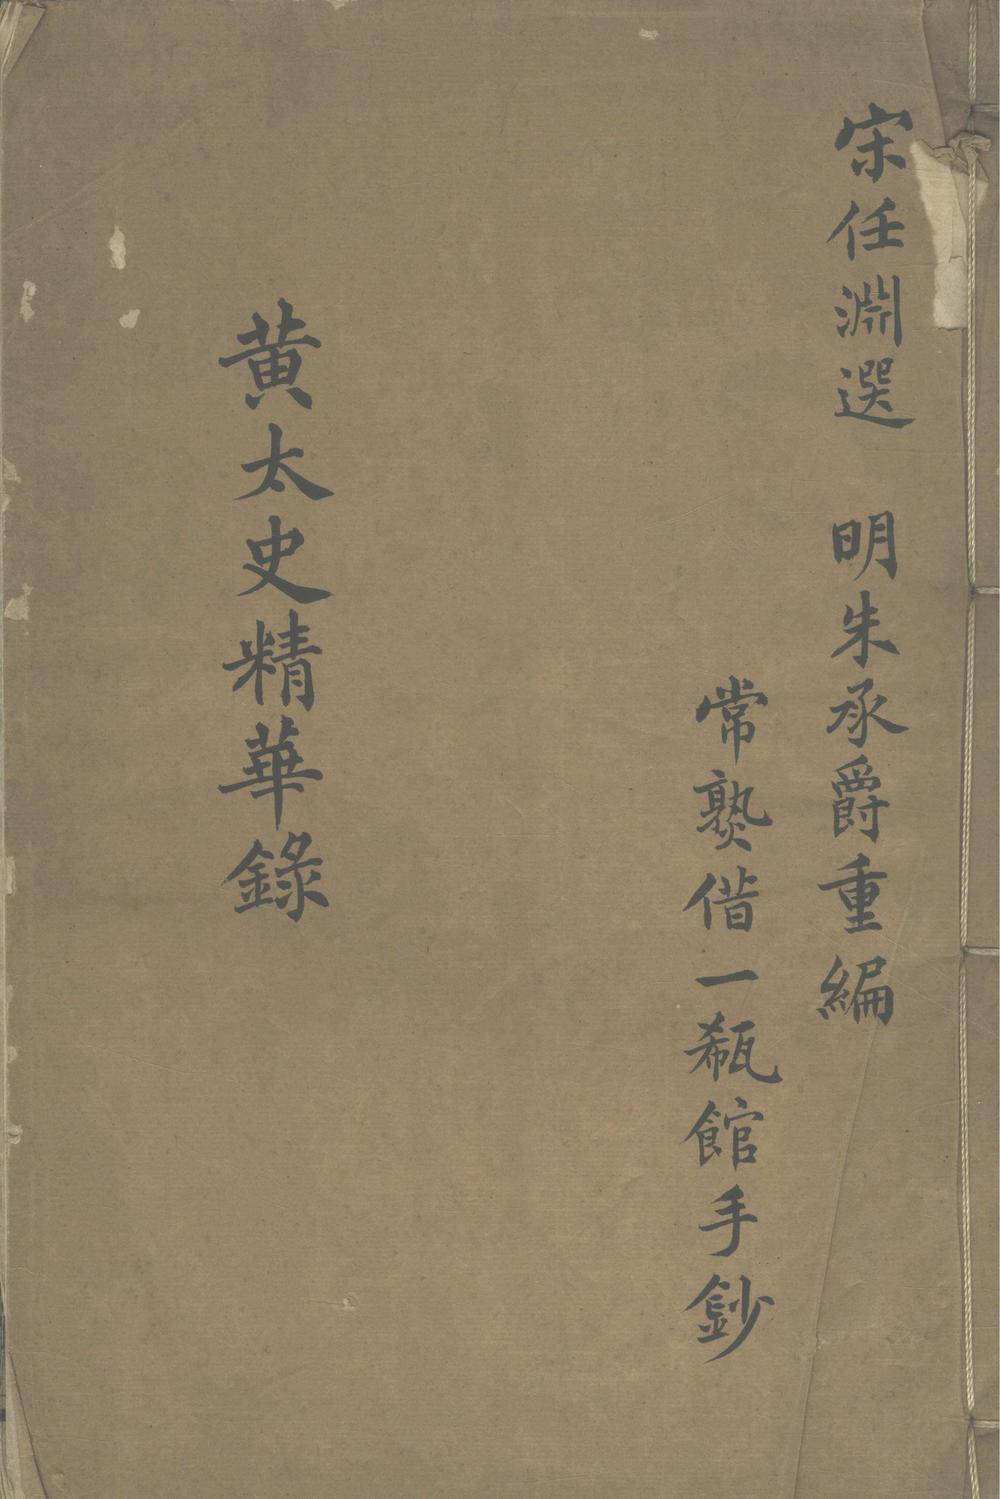 宋任淵選　明朱承爵重編
常熟偕一瓻館手鈔
黄太史精華錄